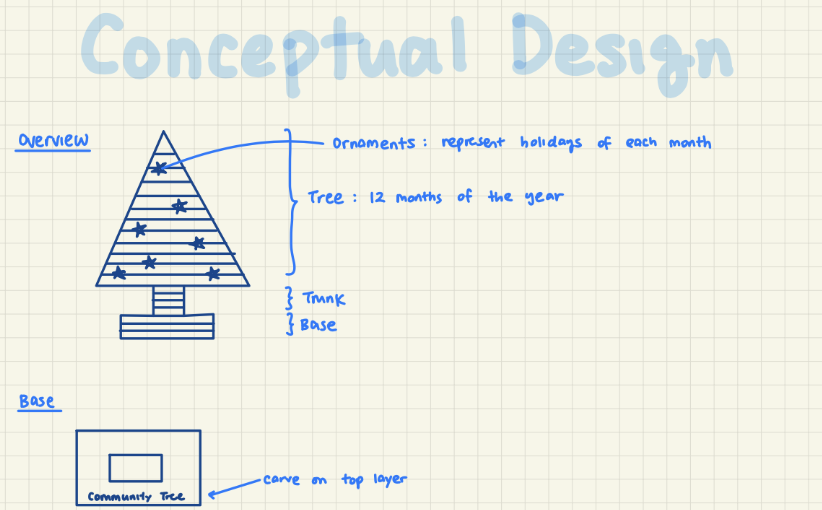 Conceptual Design
Overview
Ornaments : represent holidays of each month
Tree : 12 months of the year
Trunk
Base
Base
carve on top layer
Community Tree